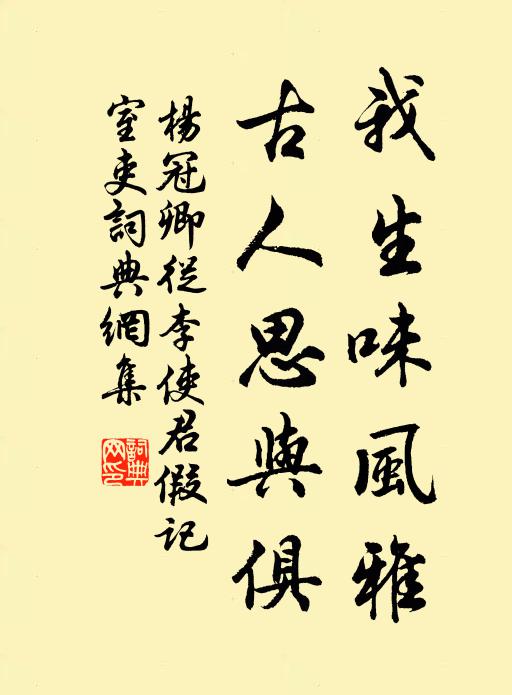 我生味風雅
古人思與俱
楊冠卿從李使君假記
室吏詞典網集
詞典
网印